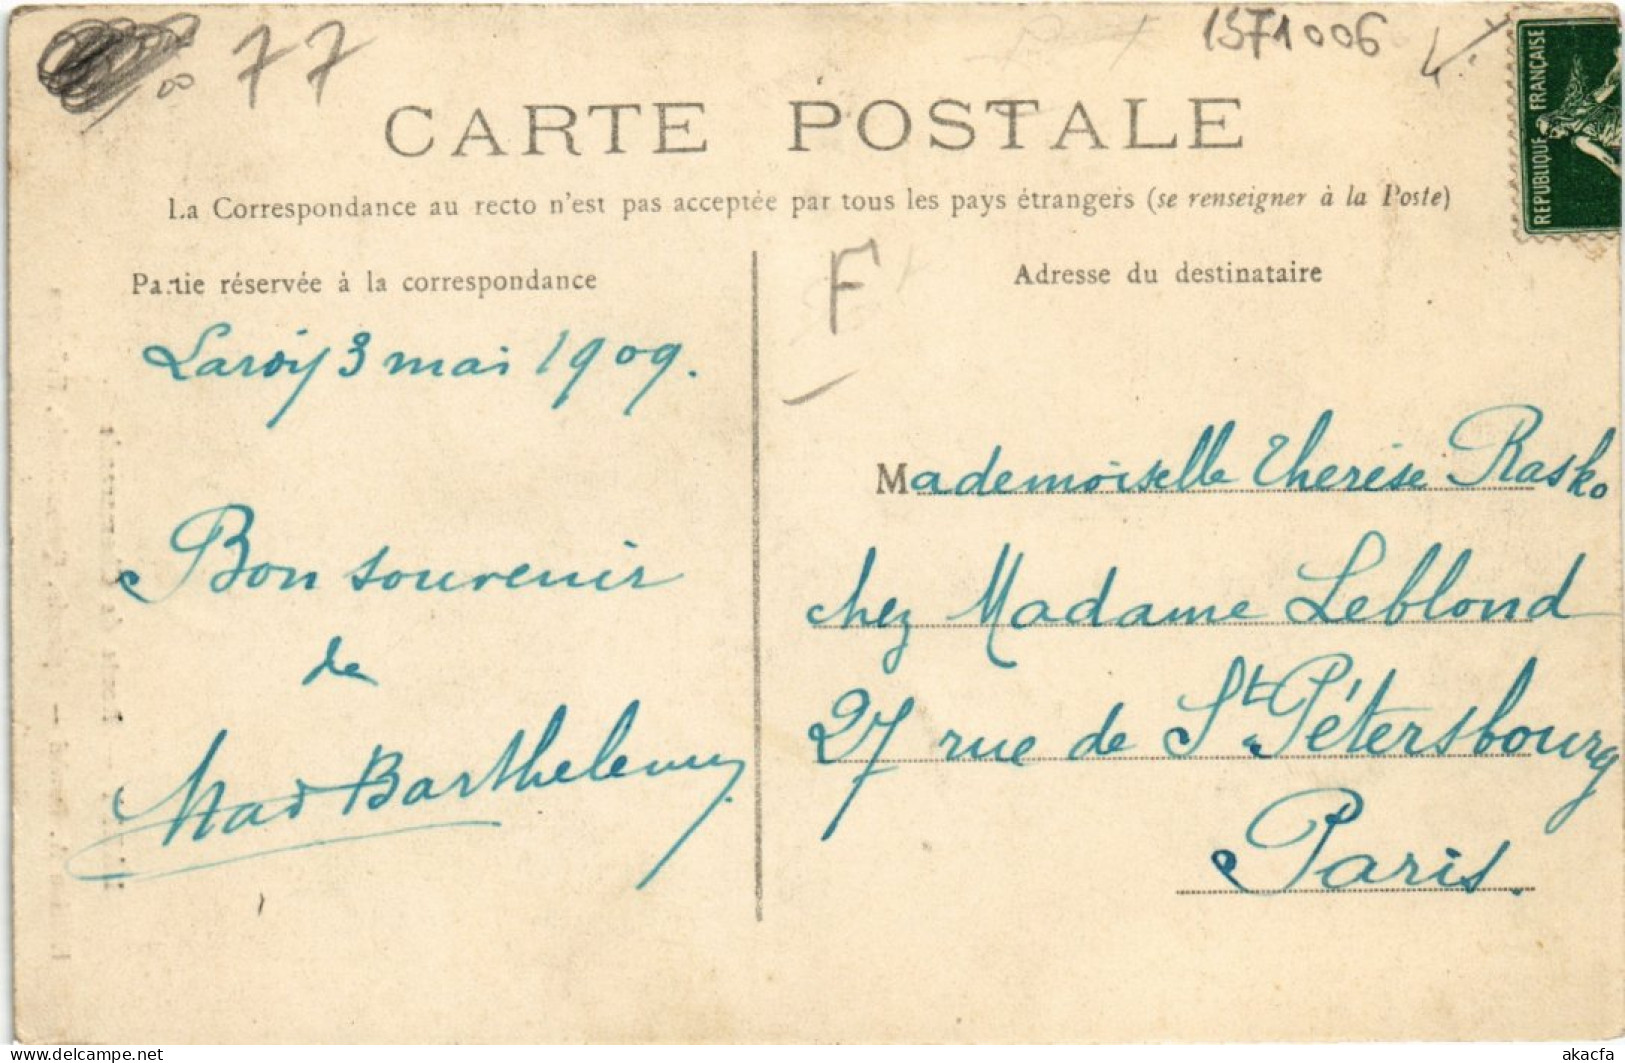 77
1571006
CARTE POSTALE
REPUBLIQUE FRANÇAISE
La Correspondance au recto n'est pas acceptée par tous les pays étrangers (se renseigner à la Poste)
Partie réservée à la correspondance
F
Adresse du destinataire
Laroy 3 mai 1909.
Bon souvenir
de
Mad Barthelemy
Mademoiselle Therése Rasko
chez Madame Leblond
27 rue de St Pétersbourg
Paris.
akacfa